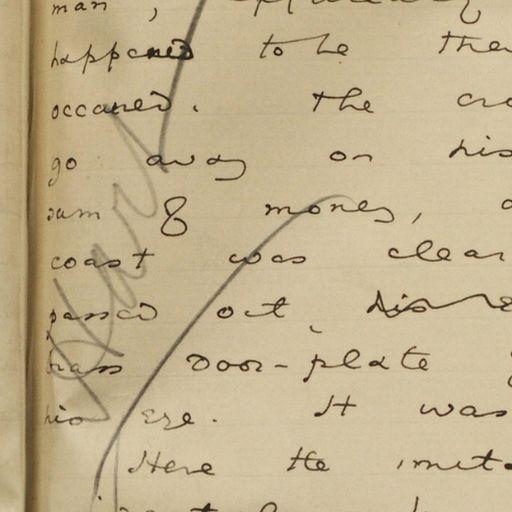 man,
happened to be
occured. The
go away on his
sum of money,
coast was clear
passed out,
brass door-plate
his eye. It was
Here the